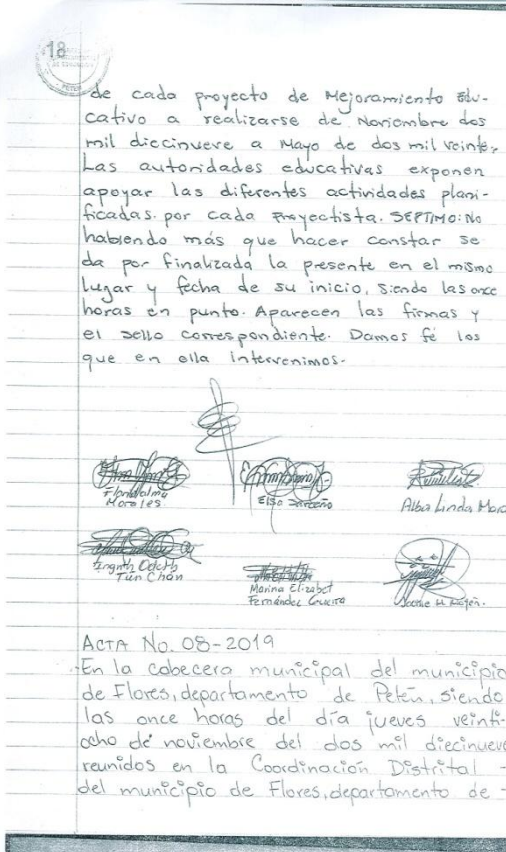 18
PETEN
de cada proyecto de Mejoramiento Edu-
cativo a realizarse de Noviembre dos
mil diecinueve a Mayo de dos mil veinte,
Las autoridades educativas exponen
apoyar las diferentes actividades plani-
ficadas por cada Proyectista. SEPTIMO: No
habiendo más que hacer constar se
da por finalizada la presente en el mismo
lugar y fecha de su inicio, siendo las once
horas en punto. Aparecen las firmas y
el sello correspondiente. Damos fé los
que en ella intervenimos.
Flondalma
Morales
Elsa
Alba Linda Mora
Ingrith Odeth
Tun Chan
Marina Elizabet
Fernández Guerra
ACTA No. 08-2019
En la cabecera municipal del municipio
de Flores, departamento de Petén, siendo
las once horas del día jueves veinti-
ocho de noviembre del dos mil diecinueve
reunidos en la Coordinación Distrital -
del municipio de Flores, departamento de -